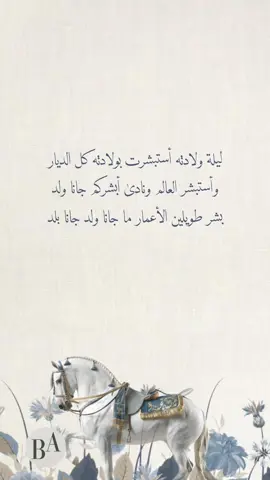 ليلة ولادته أستبشرت بولادته كل الديار
وأستبشر العالم ونادى أبشركم جانا ولد
بشر طويلين الأعمار ما جانا ولد جانا بلد
BA